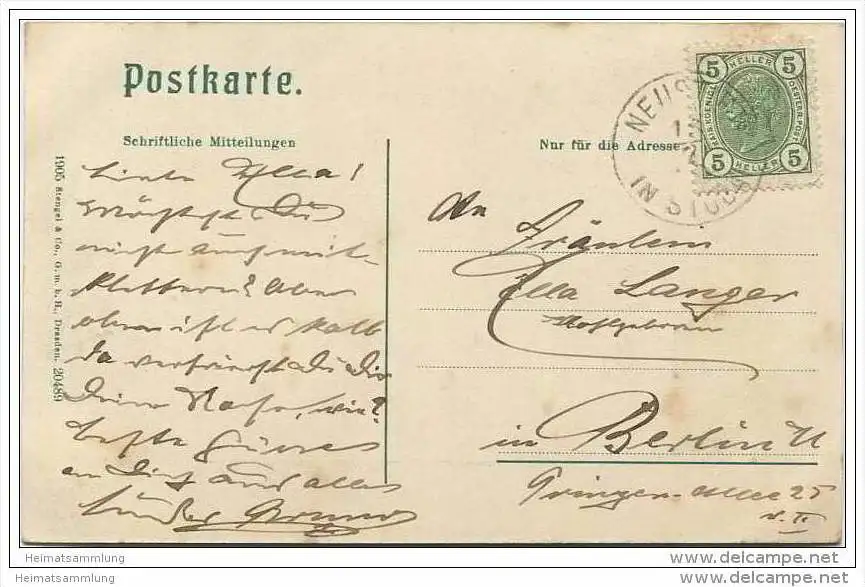 Postkarte.
Schriftliche Mitteilungen
Nur für die Adresse
5 HELLER 5
KAIS. KOENIGL. OESTERR. POST
5 HELLER 5
NEUS
IN STUB
1905 Stengel & Co., G. m. b. H., Dresden. 20489
Liebe Ella!
Möchtest Du
nicht auch mit
klettern? Aber
oben ist es kalt
da verfrierst Du Dir
Deine Nase, wie?
beste Grüsse
an Dich und alle
An
Fräulein
Ella Langer
in Berlin N
Allee 25
v. II
Heimatsammlung
Heimatsammlung
www.delcampe.net
www.delcampe.net